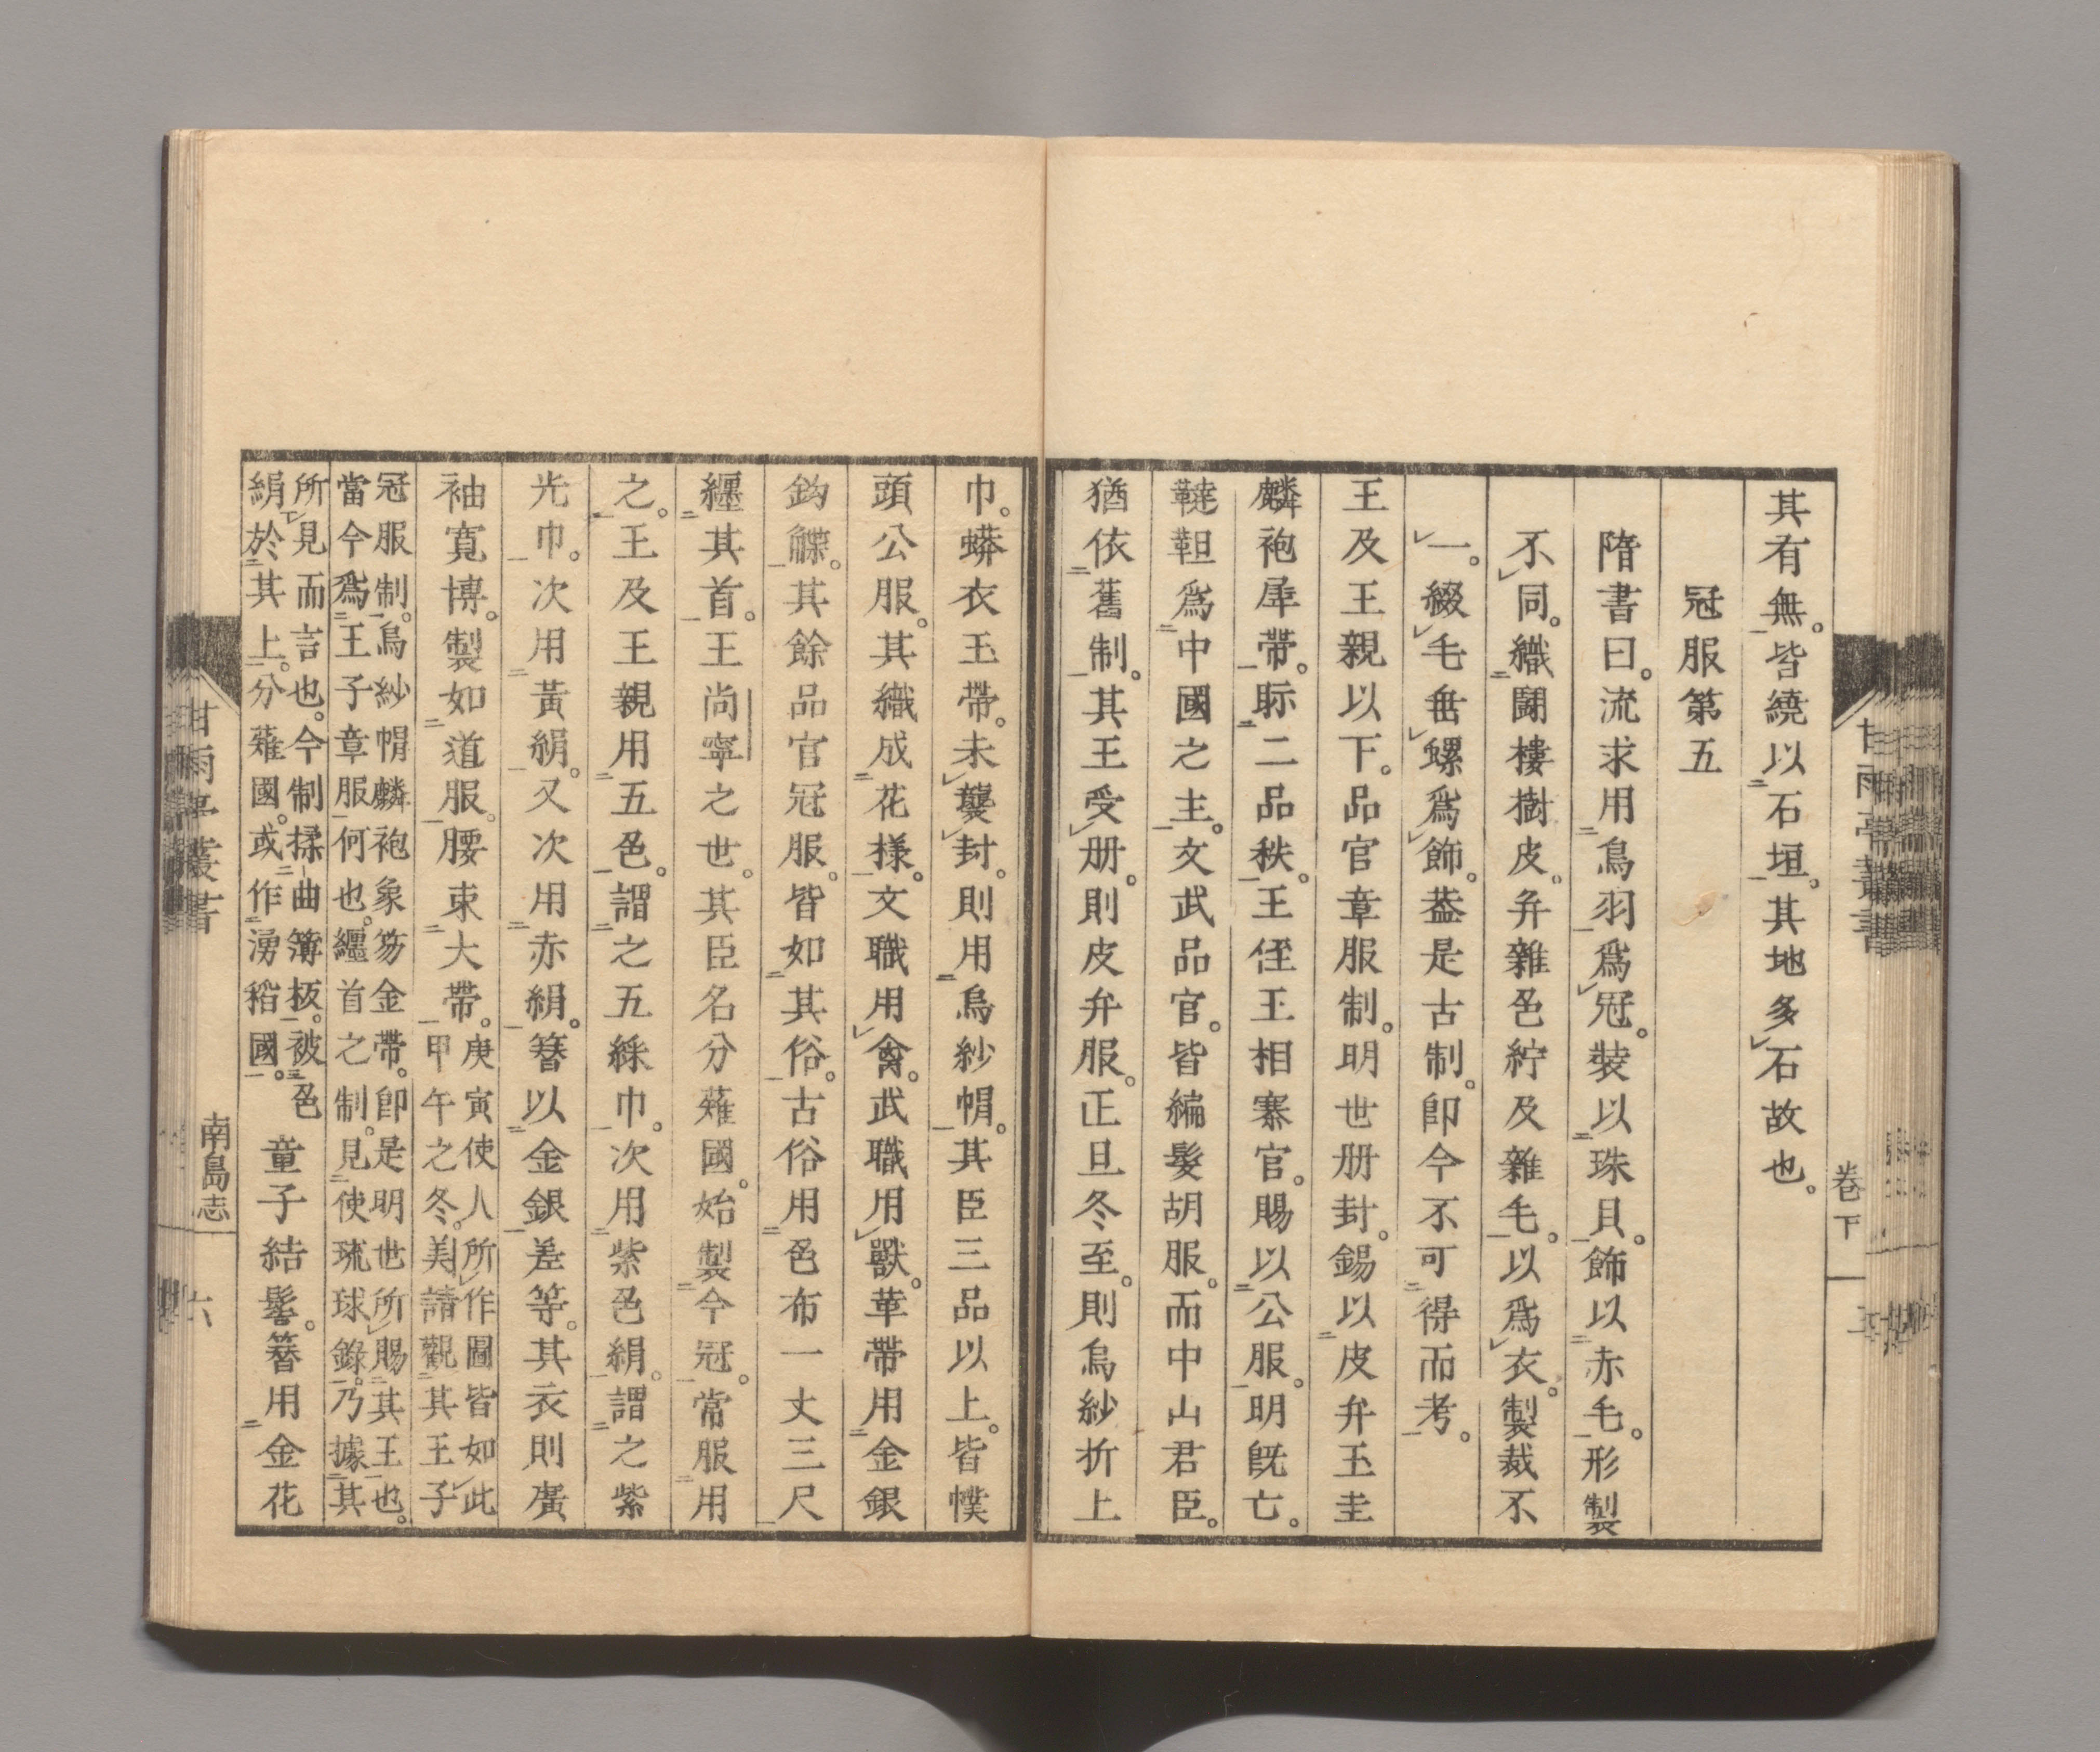 其有無。皆繞以石垣。其地多石故也。
冠服第五
隋書曰。流求用鳥羽爲冠。裝以珠貝。飾以赤毛。形製
不同。織鬪樓樹皮。弁雜色紵及雜毛。以爲衣。製裁不
一。綴毛垂螺爲飾。葢是古制。卽今不可得而考。
王及王親以下。品官章服制。明世册封。錫以皮弁玉圭
麟袍犀帶。眎二品秩。王侄王相寨官。賜以公服。明旣亡。
韃靼爲中國之主。文武品官。皆編髮胡服。而中山君臣。
猶依舊制。其王受册。則皮弁服。正旦冬至。則烏紗折上
巾。蟒衣玉帶。未襲封。則用烏紗帽。其臣三品以上。皆幞
頭公服。其織成花樣。文職用禽。武職用獸。革帶用金銀
鈎䚢。其餘品官冠服。皆如其俗。古俗用色布一丈三尺
纒其首。王尚寧之世。其臣名分薙國。始製今冠。常服用
之。王及王親用五色。謂之五綵巾。次用紫色絹。謂之紫
光巾。次用黃絹。又次用赤絹。簪以金銀差等。其衣則廣
袖寬博。製如道服。腰束大帶。庚寅使人所作圖皆如此
甲午之冬。美請觀其王子
冠服制。烏紗帽麟袍象笏金帶。卽是明世所賜其王也。
當今爲王子章服何也。纒首之制。見使琉球錄。乃據其
所見而言也。今制揉曲簿板。被色
絹於其上。分薙國。或作湧稻國。童子結髻。簪用金花
甘雨亭叢書
卷下
甘雨亭叢書
南島志
六